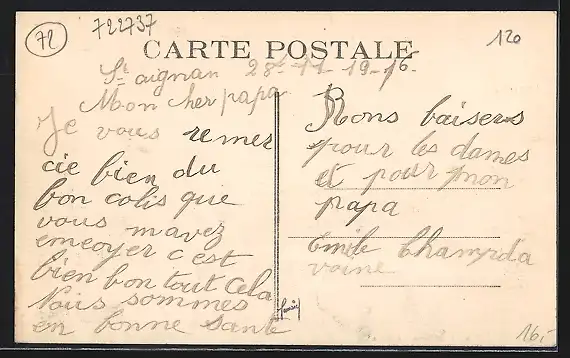 72
722737
120
CARTE POSTALE
St aignan 28-11-1916.
Mon cher papa
Je vous remer
cie bien du
bon colis que
vous mavez
envoyer c'est
bien bon tout cela
Nous sommes
en bonne sante
Bons baisers
pour les dames
et pour mon
papa
Emile Champda
voine
16,